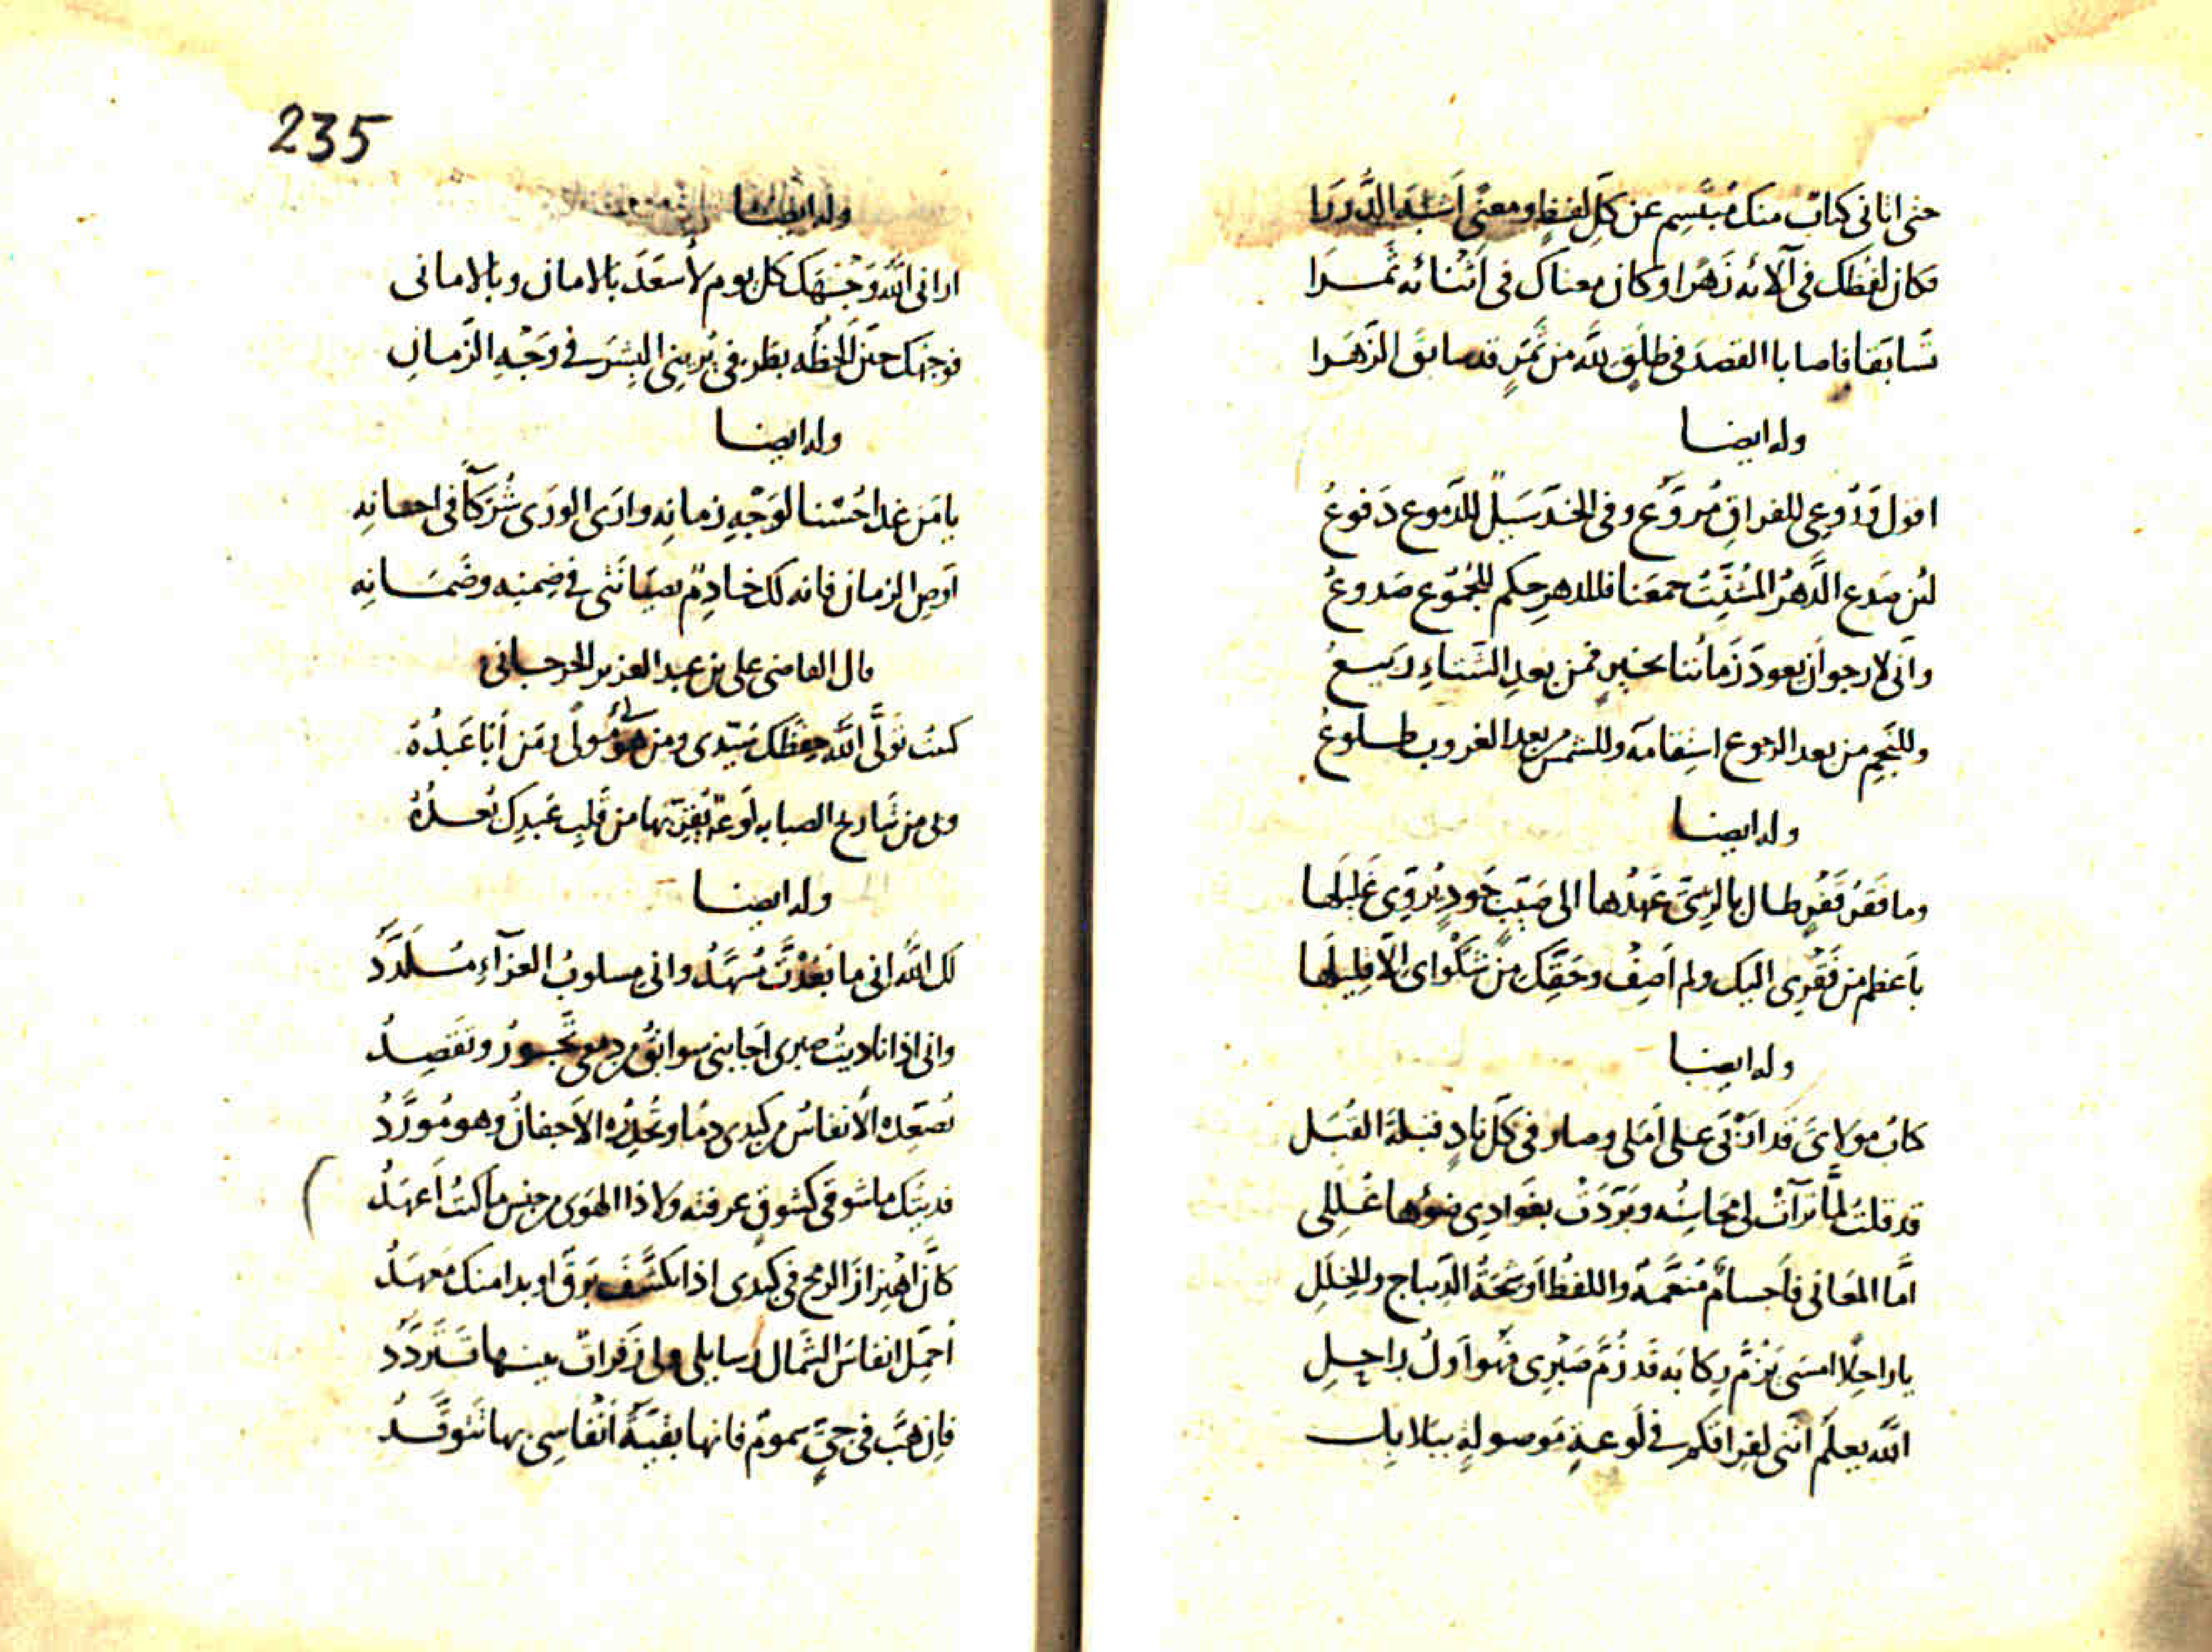 حتى اتانى كتابٌ منك مُبتسِم عن كلِ لفظٍ ومعنًى اَشبَهَ الدُّرَرَا
فكان لفظك فى آلائه زَهَرًا وكان معناك فى اَثْنائه ثَمَرَا
تَسَابَقا فاصابا القصدَ فى طَلَقٍ للهِ من ثَمَرٍ قد سابقَ الزَهَرا
وله ايضا
اقول وَرُوعى للفراقِ مُرَوَّع وفى الخدّ سَيلٌ للدّموع دَفوعُ
لئن صَدع الدَّهرُ المُشَتِّتُ جمعَنا فللدهرِ حكم للجُمُوع صَدوعُ
وانّى لارجو ان يعودَ زَماننا بخيرٍ فمن بَعدِ الشّتاءِ رَبيعُ
وللنّجمِ من بعد الرجوع استِقامة وللشمس من بعد الغروب طلوعُ
وله ايضا
وما فَقرُ قَفرٍ طال بالرىّ عَهْدُها الى صَيّبٍ جَودٍ يُرَوِّى غَليلَها
باَعظم من فَقْرِى اليك ولم اَصِفْ وحَقِّكَ من شَكْواى الّا قليلَها
وله ايضا
كتابُ مولاىَ قد اَرْبَى على اَمَلى وصار فى كلّ نادٍ قبلةَ القُبَل
قد قلتُ لمّا تراَتْ لى مَحَاسِنُه وبَرّدَتْ بغَوادِى ضوئها غُلَلِى
امّا المَعَانى فاَجسامٌ مُنَعَّمَة واللفظ اَوشِحَةُ الدّيباج والحُلَلِ
يا راحِلًا امسَى يَزُمّ رِكابَه قد زُمَّ صَبْرِى فهْو اَولُ راحِلِ
اللّه يعلَم انّنى لفِراقكم فى لَوعةٍ مَوصولةٍ ببَلابِلِ
235
وله ايضا
ارانى اللّهُ وَجْهَكَ كلَّ يوم لاُسعَدَ بالامان وبالامانى
فوجهُك حينَ اَلحَظُه بطَرفى يُريِنى البِشرَ فى وَجْهِ الزّمانِ
وله ايضا
يا مَن غدا حُسْنا لوَجْهِ زمانِه وارَى الورَى شُرَكآ فى احسانِه
اَوصِ الزمان فانه لك خادِمٌ بصيانَتى فى ضِمنِه وضَمَانِه
قال القاضى على بن عبد العزيز الجرجانى
كتبتُ تولَّى اللّه حفظَك سَيّدى ومن هو لى مَولًى ومَن اَنا عَبدُهُ
وبى من تَباريح الصبابه لَوعَة يُقِرّ بها من قَلبِ عَبدِك بُعدُهُ
وله ايضا
لَكَ اللّه انى ما بَعُدْتَ مُسَهَّدُ وانى مسلوبُ العزآءِ مُبَلَّدُ
وانى اذا ناديتُ صبرى اَجابنى سوابقُ من دمعى تَجورُ وتَقصِدُ
تُصَعّده الاَنفاسُ من كبدى دمًا وتَحدِرُه الاَجفانُ وهو مُوَرَّدُ
فديتك ما شوقى كشوقٍ عرفته ولا ذا الهوى من جنس ما كنتُ اَعهَدُ
كانّ اهتِزازَ الرمح فى كبدى اذا تكشّفَ بَرقٌ او بدا منك مَعهَدُ
اُحَمِّل انفاسَ الشّمال رسايلى ولى زَفراتٌ بينها تَتَرَدَّدُ
فاِن هبَّ فى حىٍّ سمومٌ فانها بَقيّةُ اَنْفاسِى بها تَتَوَقّدُ